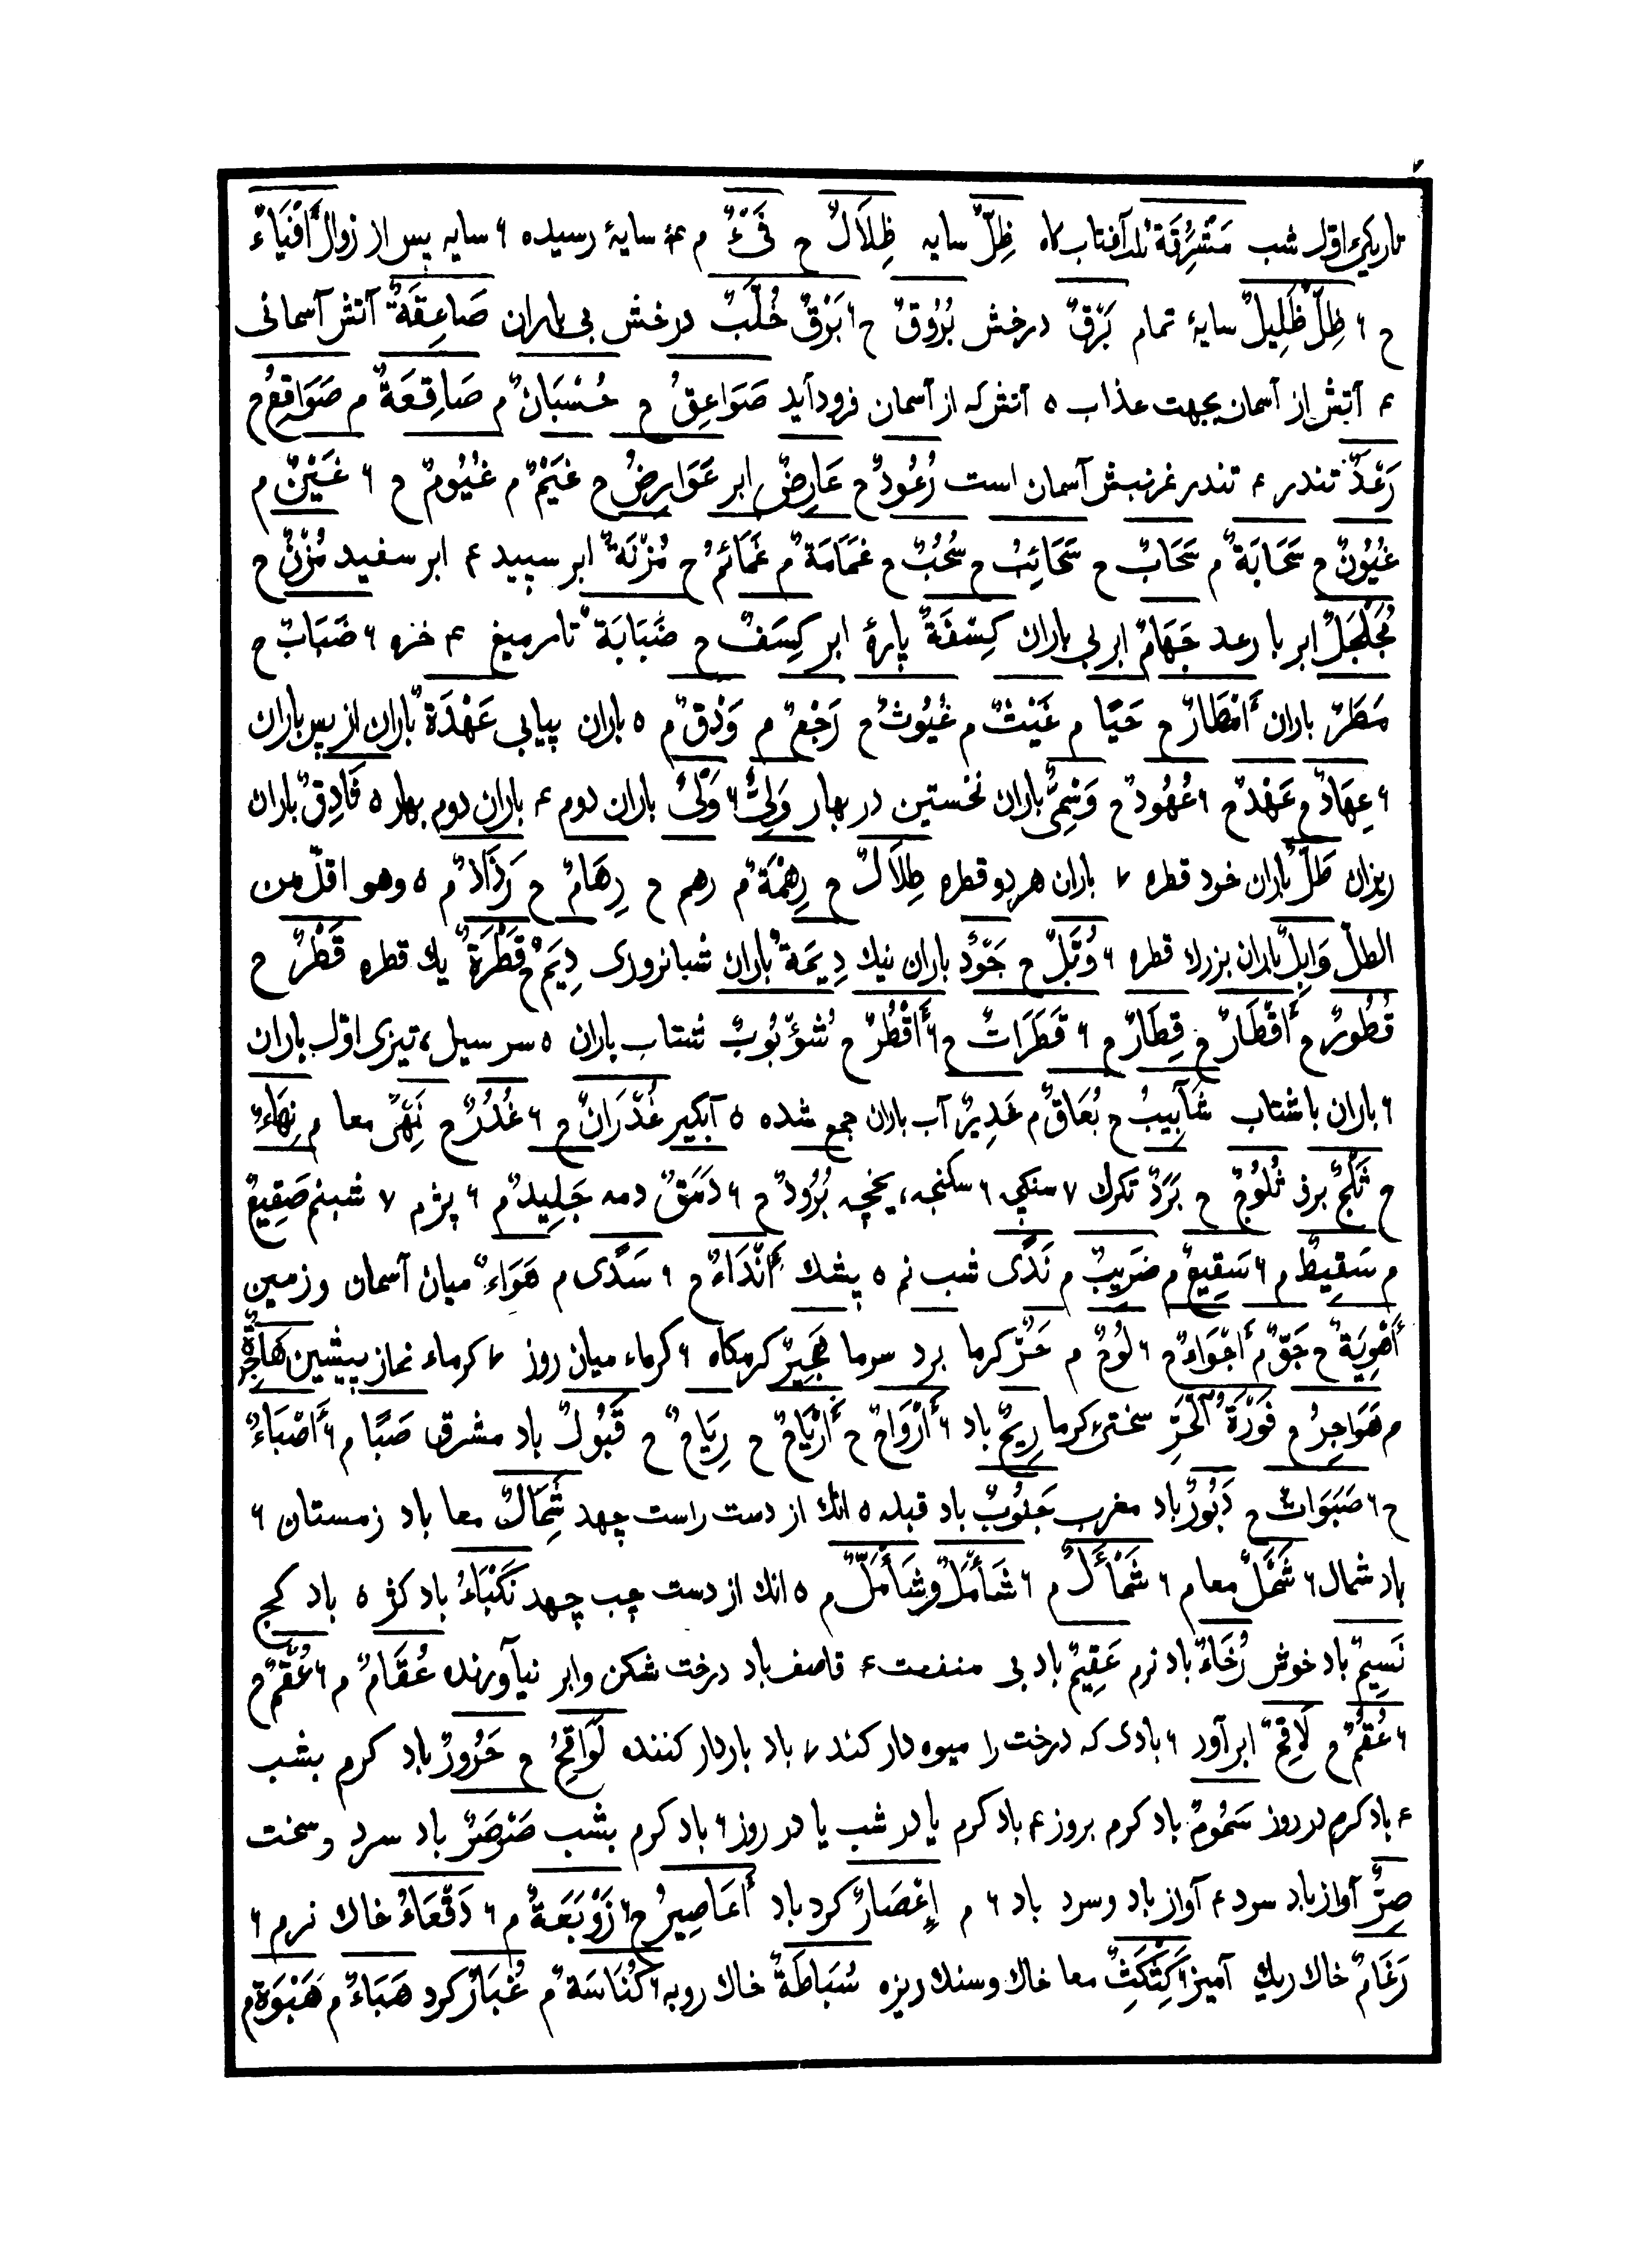 تاریکیء اوّل شب مَشْرُقَةٌ آفتاب‌کاه ظِلٌّ سایه ظِلَالٌ ح فَیْءٌ م ۴ سایهٔ رسیده ۶ سایه پس از زوال أَفْیَاءٌ
ح ۶ ظِلٌّ ظَلِیلٌ سایهٔ تمام بَرْقٌ درخش بُرُوقٌ ح ۶ بَرْقٌ خُلَّبٌ درخش بی باران صَاعِقَةٌ آتش آسمانی
۴ آتش از آسمان بجهت عذاب ۵ آتش که از آسمان فرود آید صَوَاعِقُ ح حُسْبَانٌ م صَاقِعَةٌ م صَوَاقِعُ ح
رَعْدٌ تندر ۴ تندر غرنبش آسمان است رُعُودٌ ح عَارِضٌ ابر عَوَارِضُ ح غَیْمٌ م غُیُومٌ ح ۶ غَیْنٌ م
غُیُونٌ ح سَحَابَةٌ م سَحَابٌ ح سَحَائِبُ ح سُحُبٌ ح غَمَامَةٌ م غَمَائِمُ ح مُزْنَةٌ ابر سپید ۴ ابر سفید مُزْنٌ ح
مُجَلْجَلٌ ابر با رعد جَهَامٌ ابر بی باران کِسْفَةٌ پارهٔ ابر کِسَفٌ ح ضَبَابَةٌ تارمیغ ۴ خزه ۶ ضَبَابٌ ح
مَطَرٌ باران أَمْطَارٌ ح حَیًا م غَیْثٌ م غُیُوثٌ ح رَجْعٌ م وَدْقٌ م ۵ باران پیاپی عَهْدَةٌ باران از پس باران
۶ عِهَادٌ ح عَهْدٌ ح ۶ عُهُودٌ ح وَسْمِیٌّ باران نخستین در بهار وَلِیٌّ ۶ وَلْیٌ باران دوم ۴ باران دوم بهار ۵ فَادِقٌ باران
ریزان طَلٌّ باران خود قطره ۷ باران هر دو قطره طِلَالٌ ح رِهْمَةٌ م رهم ح رِهَامٌ ح رَذَاذٌ م ۵ وهو اقلّ من
الطلّ وَابِلٌ باران بزرك قطره ۶ وُبَّلٌ ح جَوْدٌ باران نیك دِیمَةٌ باران شبانروزی دِیَمٌ ح قَطْرَةٌ یك قطره قَطْرٌ ح
قُطُورٌ ح أَقْطَارٌ ح قِطَارٌ ح ۶ قَطَرَاتٌ ح ۶ أَقْطُرٌ ح شُؤْبُوبٌ شتاب باران ۵ سر سیل، تیزی اوّل باران
۶ باران با شتاب شَآبِیبُ ح بُعَاقٌ م غَدِیرٌ آب باران جمع شده ۵ آبکیر غُدْرَانٌ ح ۶ غُدُرٌ ح نَهْیٌ معا م نِهَاءٌ
ح ثَلْجٌ برف ثُلُوجٌ ح بَرَدٌ تکرك ۷ سنکچه ۶ سکنجه، یخچه بُرُودٌ ح ۶ دَمَقٌ دمه جَلِیدٌ م ۶ پژم ۷ شبنم صَقِیعٌ
م سَقِیطٌ م ۶ سَقِیعٌ م ضَرِیبٌ م نَدًی شب نم ۵ پشك أَنْدَاءٌ ح ۶ سَدًی م هَوَاءٌ میان آسمان و زمین
أَهْوِیَةٌ ح جَوٌّ م أَجْوَاءٌ ح ۶ لُوحٌ م حَرٌّ کرما برد سرما هَجِیرٌ کرمکاه ۶ کرماء میان روز ۷ کرماء نماز پیشین هَاجِرَةٌ
م هَوَاجِرُ ح فَوْرَةُ الْحَرِّ سختیء کرما رِیحٌ باد ۶ أَرْوَاحٌ ح أَرْیَاحٌ ح رِیَاحٌ ح قَبُولٌ باد مشرق صَبًا م ۶ أَصْبَاءٌ
ح ۶ صَبَوَاتٌ ح دَبُورٌ باد مغرب جَنُوبٌ باد قبله ۵ انك از دست راست جهد شَمَالٌ معا باد زمستان ۶
باد شمال ۶ شَمْلٌ معا م ۶ شَمْأَلٌ م ۶ شَأْمَلٌ و شَأْمَلٌّ م ۵ انك از دست چپ جهد نَکْبَاءُ باد کژ ۵ باد کج
نَسِیمٌ باد خوش رُخَاءٌ باد نرم عَقِیمٌ باد بی منفعت ۴ قاصف باد درخت شکن و ابر نیاورنده عُقَامٌ م ۶ عُقَّمٌ ح
۶ عُقُمٌ ح لَاقِحٌ ابرآور ۶ بادی که درخت را میوه دار کند ۷ باد باردار کننده لَوَاقِحُ ح حَرُورٌ باد کرم بشب
۴ باد کرم در روز سَمُومٌ باد کرم بروز ۴ باد کرم یا در شب یا در روز ۶ باد کرم بشب صَرْصَرٌ باد سرد و سخت
صِرٌّ آواز باد سرد ۴ آواز باد و سرد باد ۶ م إِعْصَارٌ کرد باد أَعَاصِیرُ ح ۶ زَوْبَعَةٌ م ۶ دَقْعَاءُ خاك نرم ۶
رَغَامٌ خاك ریك آمیز ۶ کَثْکَثٌ معا خاك و سنك ریزه سُبَاطَةٌ خاك روبه ۶ کُنَاسَةٌ م غُبَارٌ کرد هَبَاءٌ م هَبْوَةٌ م